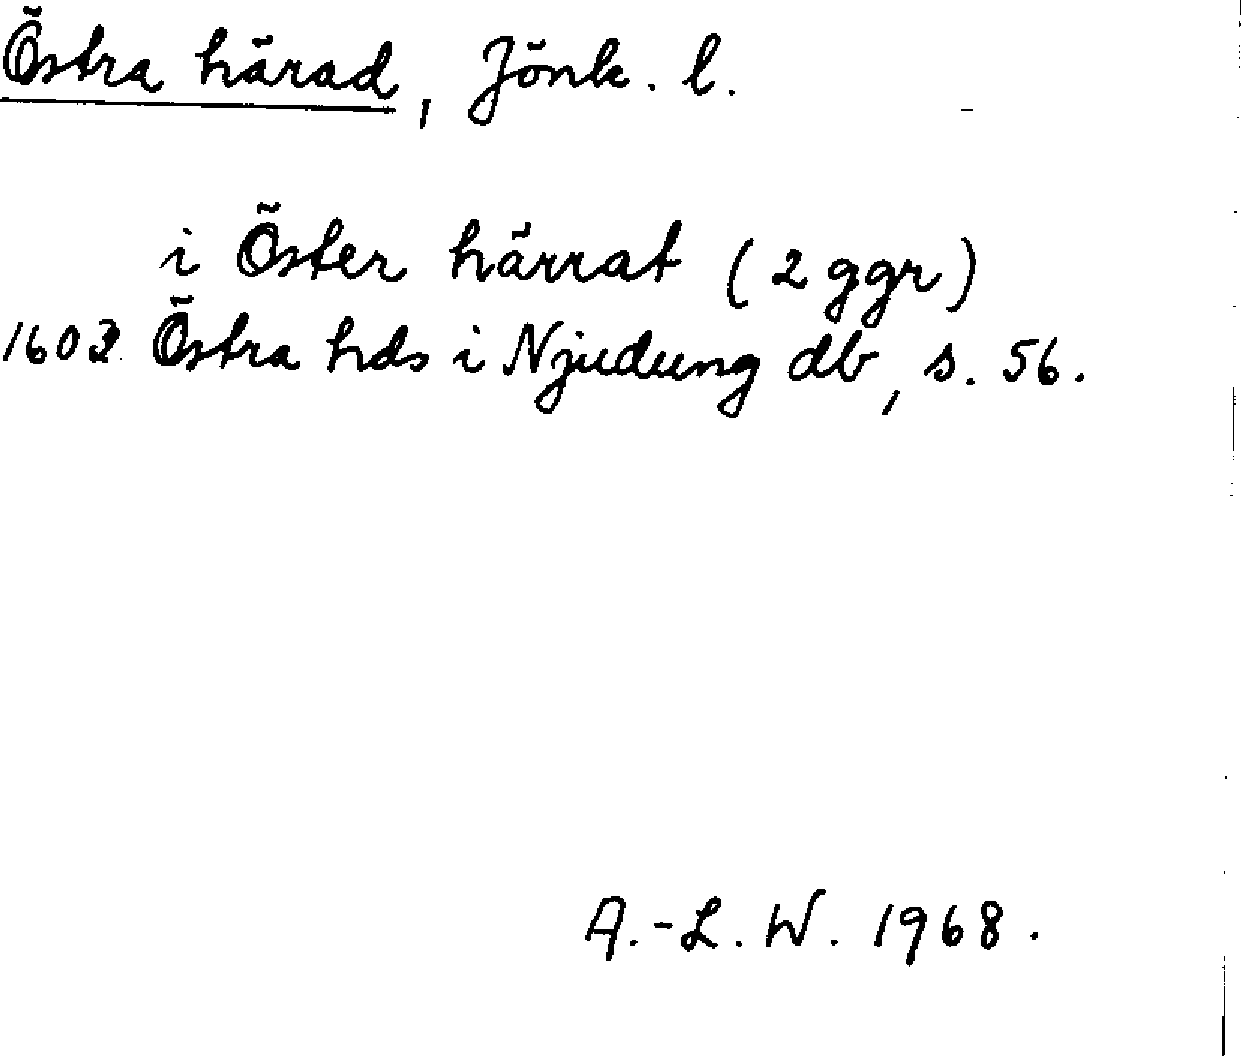 Östra härad, Jönk. l.
i Öster härrat (2 ggr)
Östra hds i Njudung db, s. 56.
A.-L. W. 1968.